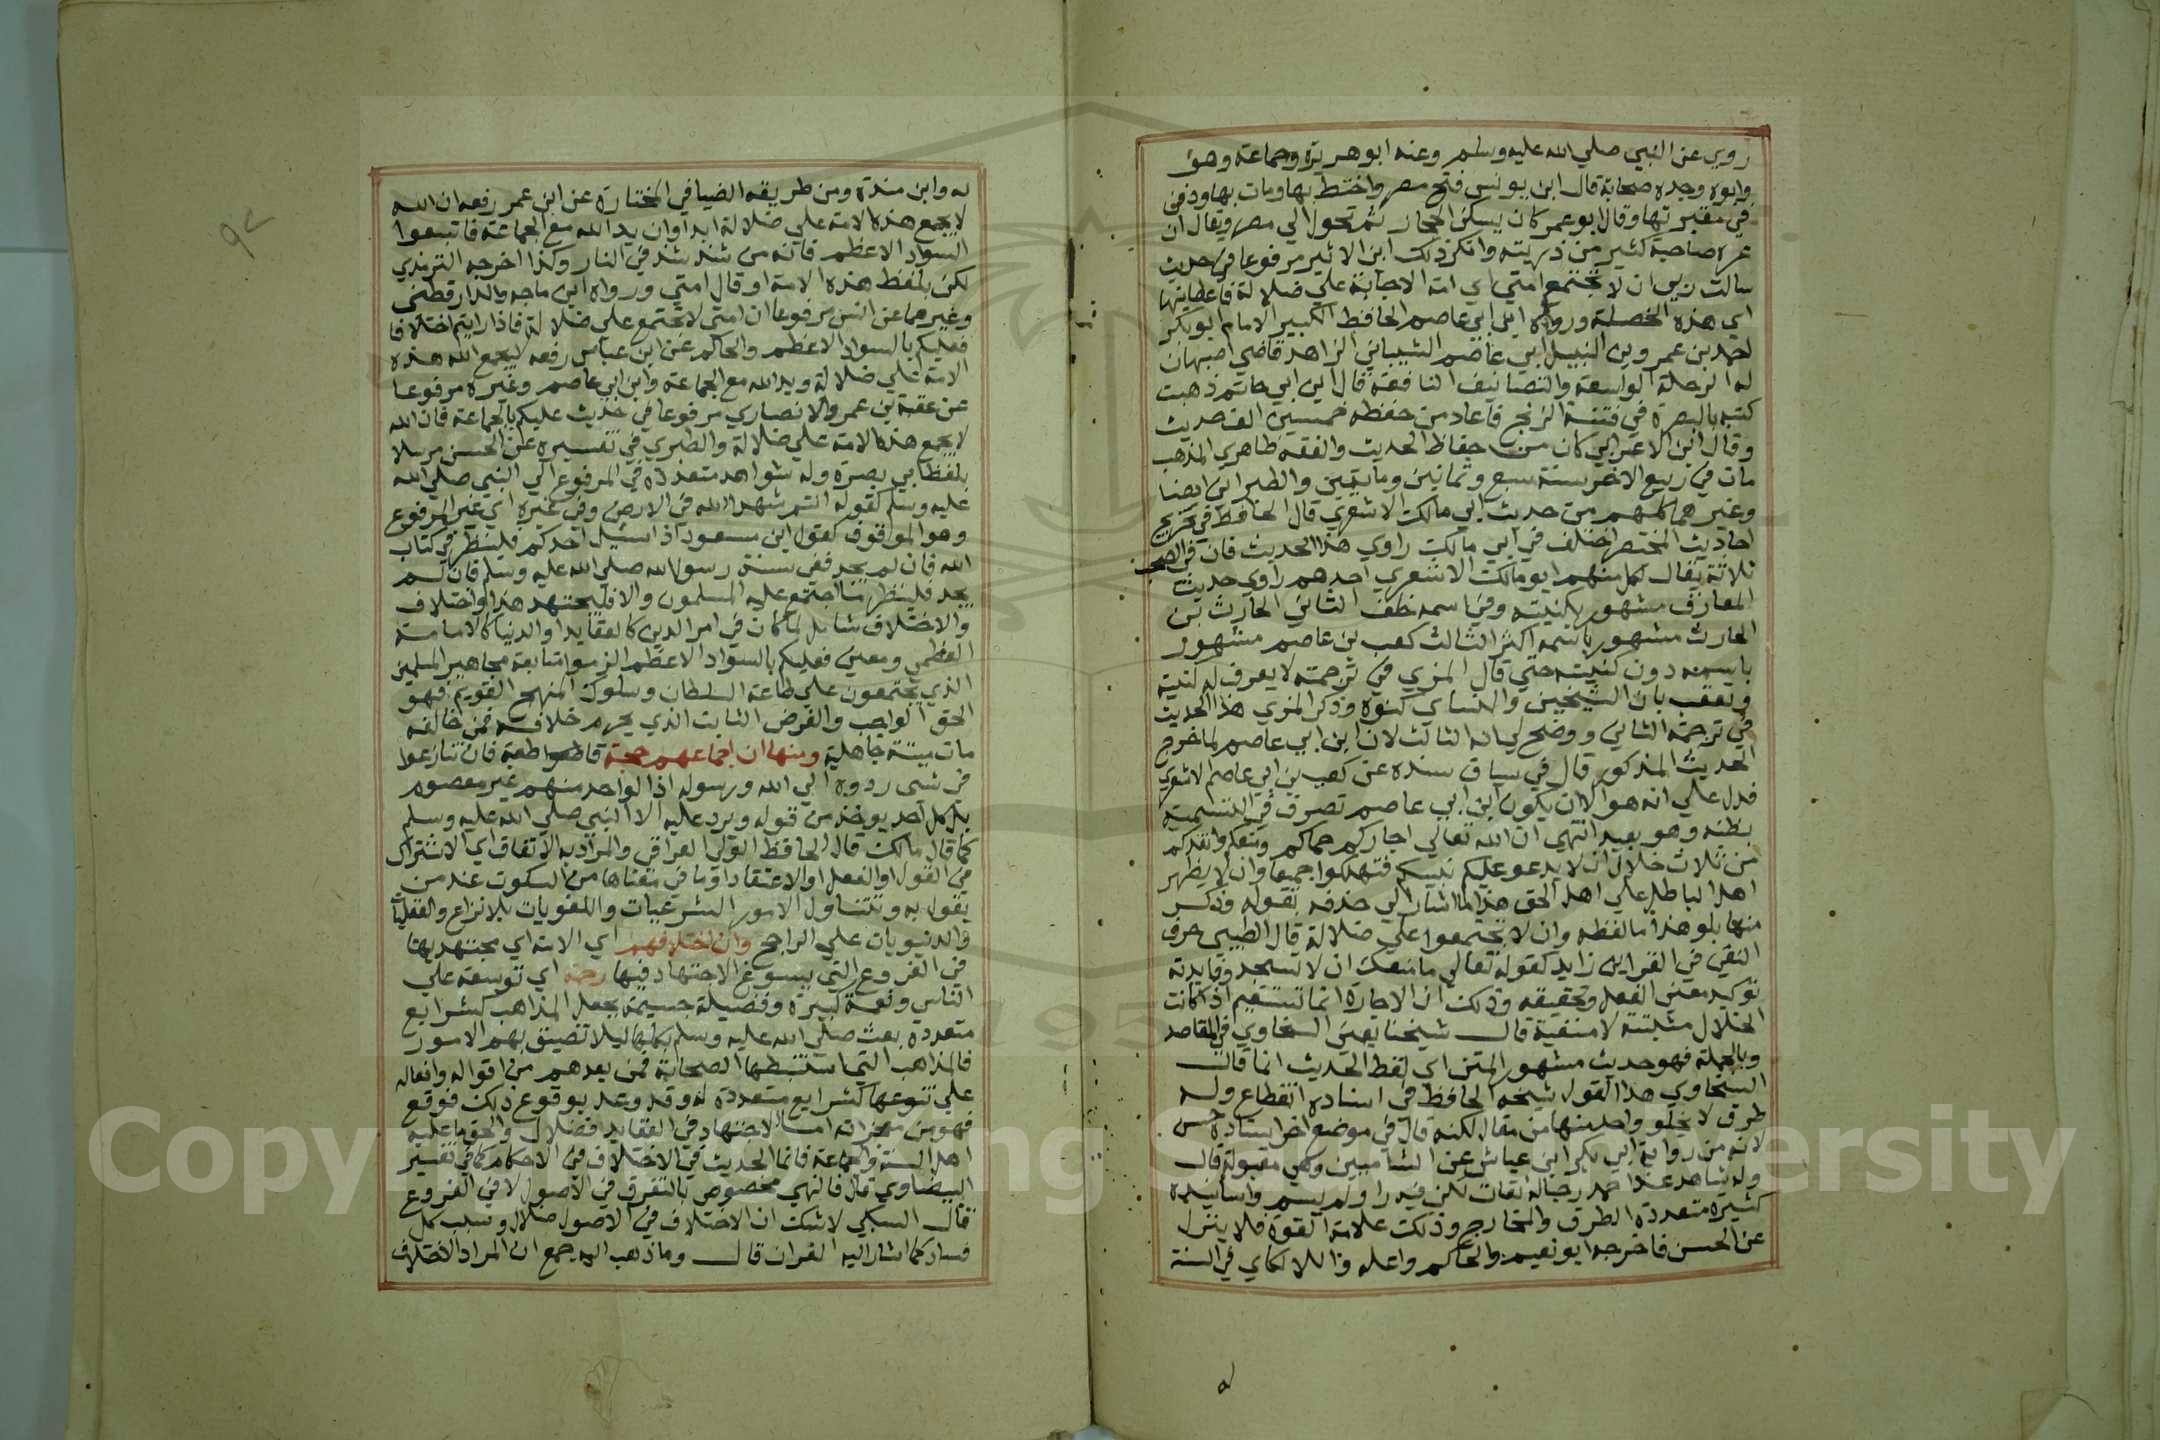 روي عن النبي صلي الله عليه وسلم وعنه ابو هريرة وجماعة وهو
وابوه وجده صحابة قال ابن يونس فتح مصر واختط بها ومات بها ودفن
في مقبرتها وقال ابو عمر كان يسكن الحجاز ثم تحول الي مصر ويقال ان
عزة صاحبة كثير من ذريته وانكر ذلك ابن الاثير مرفوعا في حديث
سالت ربي ان لا تجتمع امتي اي امة الاجابة علي ضلالة فاعطانيها
اي هذه الخصلة ورواه ابن ابي عاصم الحافظ الكبير الامام ابو بكر
احمد بن عمرو بن النبيل ابي عاصم الشيباني الزاهد قاضي اصبهان
له الرحلة الواسعة والتصانيف النافعة قال ابن ابي حاتم ذهبت
كتبه بالبصرة في فتنة الزنج فاعاد من حفظه خمسين الف حديث
وقال ابن الاعرابي كان من حفاظ الحديث والفقه ظاهري المذهب
مات في ربيع الاخر سنة سبع وثمانين ومايتين والطبراني ايضا
وغيرهما كلهم من حديث ابي مالك الاشعري قال الحافظ في تخريج
احاديث المختصر اختلف في ابي مالك راوي هذا الحديث فان في الصحب
ثلاثة يقال لكل منهم ابو مالك الاشعري احدهم راوي حديث
المعازف مشهور بكنيته وفي اسمه خلف الثاني الحارث بن
الحارث مشهور باسمه اكثر الثالث كعب بن عاصم مشهور
باسمه دون كنيته حتي قال المزي في ترجمته لا يعرف له كنية
وتعقب بان الشيخين والنساي كنوه وذكر المزي هذا الحديث
في ترجمة الثاني ووضح لي انه الثالث لان ابن ابي عاصم لما خرج
الحديث المذكور قال في سياق سنده عن كعب بن ابي عاصم الاشعري
فدل علي انه هو الا ان يكون ابن ابي عاصم تصرف في التسمية
بظنه وهو بعيد انتهي ان الله تعالي اجاركم حماكم ومنعكم وانقذكم
من ثلاث خلال ان لا يدعو عليكم نبيكم فتهلكوا جميعا وان لا يظهر
اهل الباطل علي اهل الحق هذا ما اشار الي حذفه بقوله وذكر
منها بلو هذا ما لفظه وان لا تجتمعوا علي ضلالة قال الطيبي حرف
النفي في القراين زايد كقوله تعالي ما منعك ان لا تسجد وفايدته
توكيد معني الفعل وتحقيقه وذلك ان الاجارة انما تستقيم اذا كانت
الخلال مثبتة لا منفية قال شيخنا يعني السخاوي في المقاصد
وبالجملة فهو حديث مشهور المتن اي لفظ الحديث انما قال
السخاوي هذا القول شيخه الحافظ في اسناده انقطاع وله
طرق لا يخلو واحد منها من مقال لكنه قال في موضع اخر اسناده حسن
لانه من رواية ابي بكر ابن عياش عن الشاميين وهي مقبولة قال
وله شاهد عند احمد رجاله ثقات لكن فيه راو لم يسم واسانيده
كثيرة متعددة الطرق والمخارج وذلك علامة القوة فلا ينزل
عن الحسن فاخرجه ابو نعيم والحاكم واعله واللالكاي في السنة
له وابن مندة ومن طريقه الضيا في المختارة عن ابن عمر رفعه ان الله
لا يجمع هذه الامة علي ضلالة ابدا وان يد الله مع الجماعة فاتبعوا
السواد الاعظم فانه من شذ شذ في النار وكذا اخرجه الترمذي
لكن بلفظ هذه الامة او قال امتي ورواه ابن ماجه والدارقطني
وغيرهما عن انس مرفوعا ان امتي لا تجتمع علي ضلالة فاذا رايتم اختلافا
فعليكم بالسواد الاعظم والحاكم عن ابن عباس رفعه ليجمع الله هذه
الامة علي ضلالة ويد الله مع الجماعة وابن ابي عاصم وغيره مرفوعا
عن عقبة بن عمرو الانصاري مرفوعا في حديث عليكم بالجماعة فان الله
لا يجمع هذه الامة علي ضلالة والطبري في تفسيره عن الحسن مرسلا
بلفظ ابي بصرة وله شواهد متعددة في المرفوع الي النبي صلي الله
عليه وسلم كقوله انتم شهدا الله في الارض وفي غيره اي غير المرفوع
وهو الموقوف كقول ابن مسعود اذا سئل احدكم فلينظر في كتاب
الله فان لم يجد ففي سنة رسول الله صلي الله عليه وسلم فان لم
يجد فلينظر ما اجتمع عليه المسلمون والا فليجتهد هذا واختلاف
والاختلاف شامل لما كان في امر الدين كالعقايد او الدنيا كالامامة
العظمي ومعني فعليكم بالسواد الاعظم الزموا متابعة جماهير المسلمين
الذي يجتمعون علي طاعة السلطان وسلوك المنهج القويم فهو
الحق الواجب والفرض الثابت الذي يحرم خلافه فمن خالفه
مات ميتة جاهلية ومنها ان اجماعهم حجة قاطعة فان تنازعوا
في شي ردوه الي الله ورسوله اذ الواحد منهم غير معصوم
بل كل احد يوخذ من قوله ويرد عليه الا النبي صلي الله عليه وسلم
كما قال مالك قال الحافظ الولي العراقي والمراد به الاتفاق اي الاشتراك
في القول او الفعل او الاعتقاد او ما في معناها من السكوت عند من
يقول به وتتناول الامور الشرعيات واللغويات بلا نزاع والعقليات
والدنيويات علي الراجح وان اختلافهم اي الامة اي مجتهديها
في الفروع التي يسوغ الاجتهاد فيها رحمة اي توسعة علي
الناس ونعمة كبيرة وفضيلة جسيمة بجعل المذاهب كشرايع
متعددة بعث صلي الله عليه وسلم بكلها ليلا تضيق بهم الامور
فالمذاهب التي استنبطها الصحابة فمن بعدهم من اقواله وافعاله
علي تنوعها كشرايع متعددة له وقد وعد بوقوع ذلك فوقع
فهو من معجزاته اما الاجتهاد في العقايد فضلال والحق ما عليه
اهل السنة والجماعة فانما الحديث في الاختلاف في الاحكام كما في تفسير
البيضاوي قال فالنهي مخصوص بالتفرق في الاصول لا في الفروع
قال السبكي لا شك ان الاختلاف في الاصول ضلال وسبب كل
فساد كما اشار اليه القران قال وما ذهب اليه جمع ان المراد الاختلاف